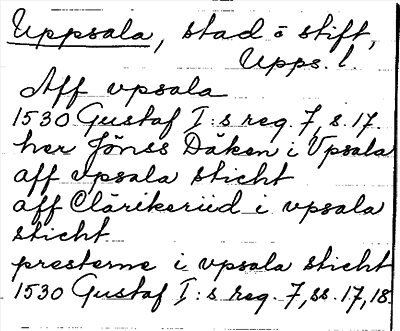 Uppsala, stad o stift,
Upps. l.
Aff vpsala
1530 Gustaf I:s reg. 7, s. 17.
her Jönss Däken i Vpsala
aff vpsala sticht
aff Clärikeriid i vpsala
sticht
presterne i vpsala sticht
1530 Gustaf I:s reg. 7, ss. 17, 18.